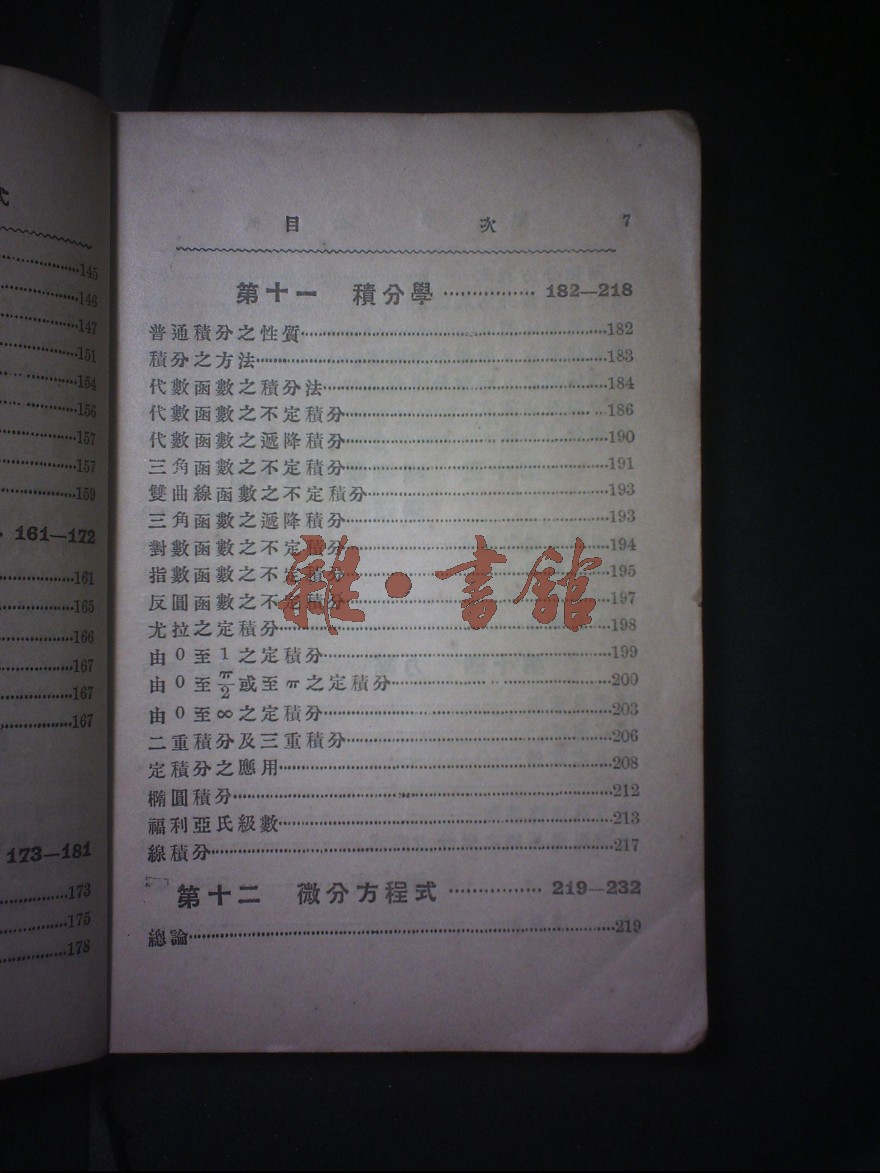 式
145
146
147
151
154
156
157
157
159
161—172
161
165
166
167
167
167
173—181
173
175
178
目 次 7
第十一 積分學 182—218
普通積分之性質 182
積分之方法 183
代數函數之積分法 184
代數函數之不定積分 186
代數函數之遞降積分 190
三角函數之不定積分 191
雙曲線函數之不定積分 193
三角函數之遞降積分 193
對數函數之不定積分 194
指數函數之不定積分 195
反圓函數之不定積分 197
尤拉之定積分 198
由0至1之定積分 199
由0至π/2或至π之定積分 200
由0至∞之定積分 203
二重積分及三重積分 206
定積分之應用 208
橢圓積分 212
福利亞氏級數 213
線積分 217
第十二 微分方程式 219—232
總論 219
雜·書館